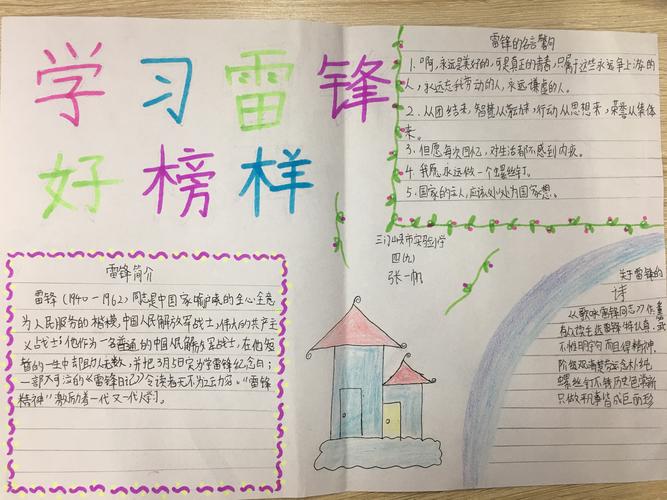 学习雷锋
好榜样
雷锋的名言警句
1.啊,永远是美好的,可是真正的青春,只属于这些永远争上游的
人,永远忘我劳动的人,永远谦虚的人。
2.从团结来,智慧从劳动来,行动从思想来,荣誉从集体
来。
3.但愿每次回忆,对生活都不感到内疚。
4.我愿永远做一个螺丝钉。
5.国家的主人,应该处处为国家想。
三门峡市实验小学
四(九)
张一帆
雷锋简介
雷锋(1940-1962)同志是中国家喻户晓的全心全意
为人民服务的楷模,中国人民解放军战士,伟大的共产主
义战士;他作为一名普通的中国人民解放军战士,在他短
暂的一生中却助人无数,并把3月5日定为学雷锋纪念日;
一部可治的《雷锋日记》令读者无不为之。“雷锋
精神”激励着一代又一代人学习。
关于雷锋的
诗
从歌咏雷锋同志
不惟明字句而且得精神
阶级
螺丝钉不锈历史色常新
只做平凡事皆成巨丽形